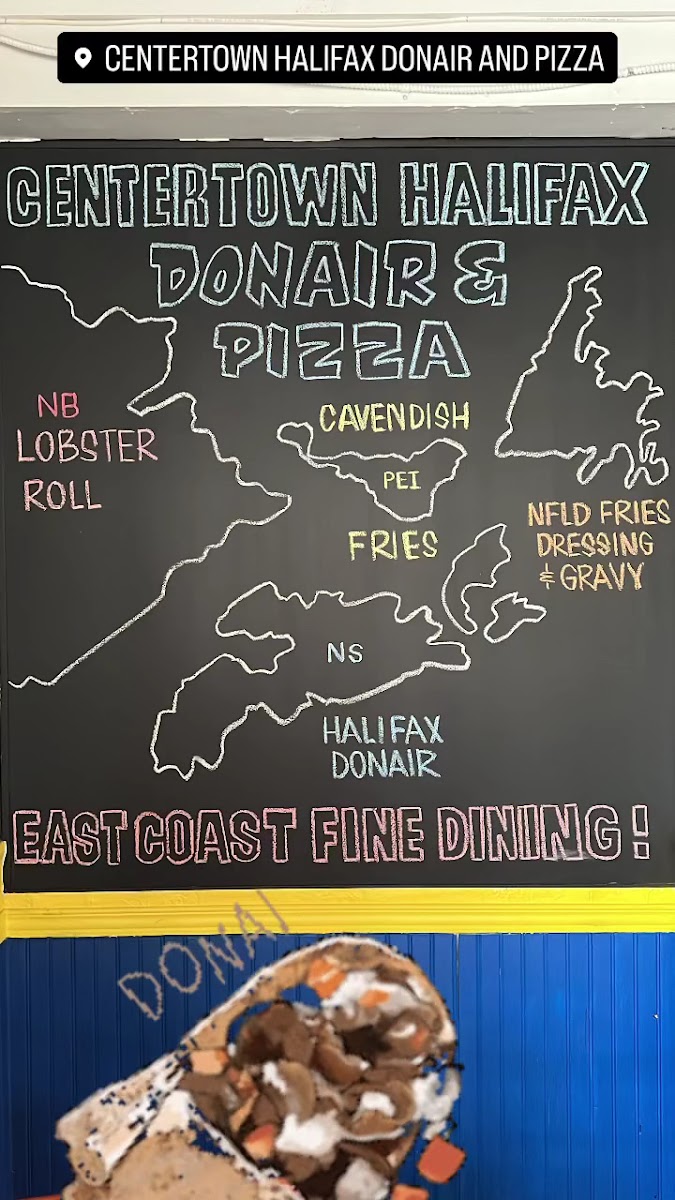 CENTERTOWN HALIFAX DONAIR AND PIZZA
CENTERTOWN HALIFAX
DONAIR &
PIZZA
NB
LOBSTER
ROLL
CAVENDISH
PEI
FRIES
NFLD FRIES
DRESSING
& GRAVY
NS
HALIFAX
DONAIR
EAST COAST FINE DINING!
DONAI